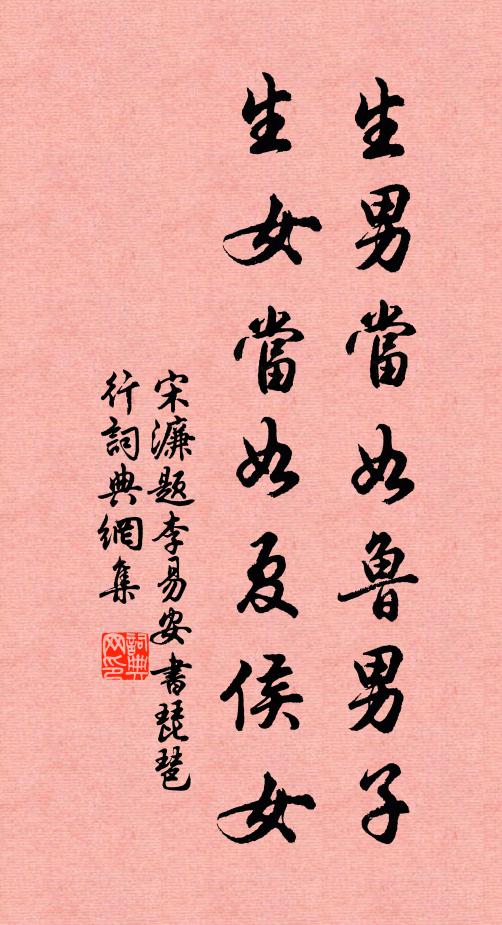 生男當如魯男子
生女當如夏侯女
宋濂題李易安書琵琶
行詞典網集
詞典网印